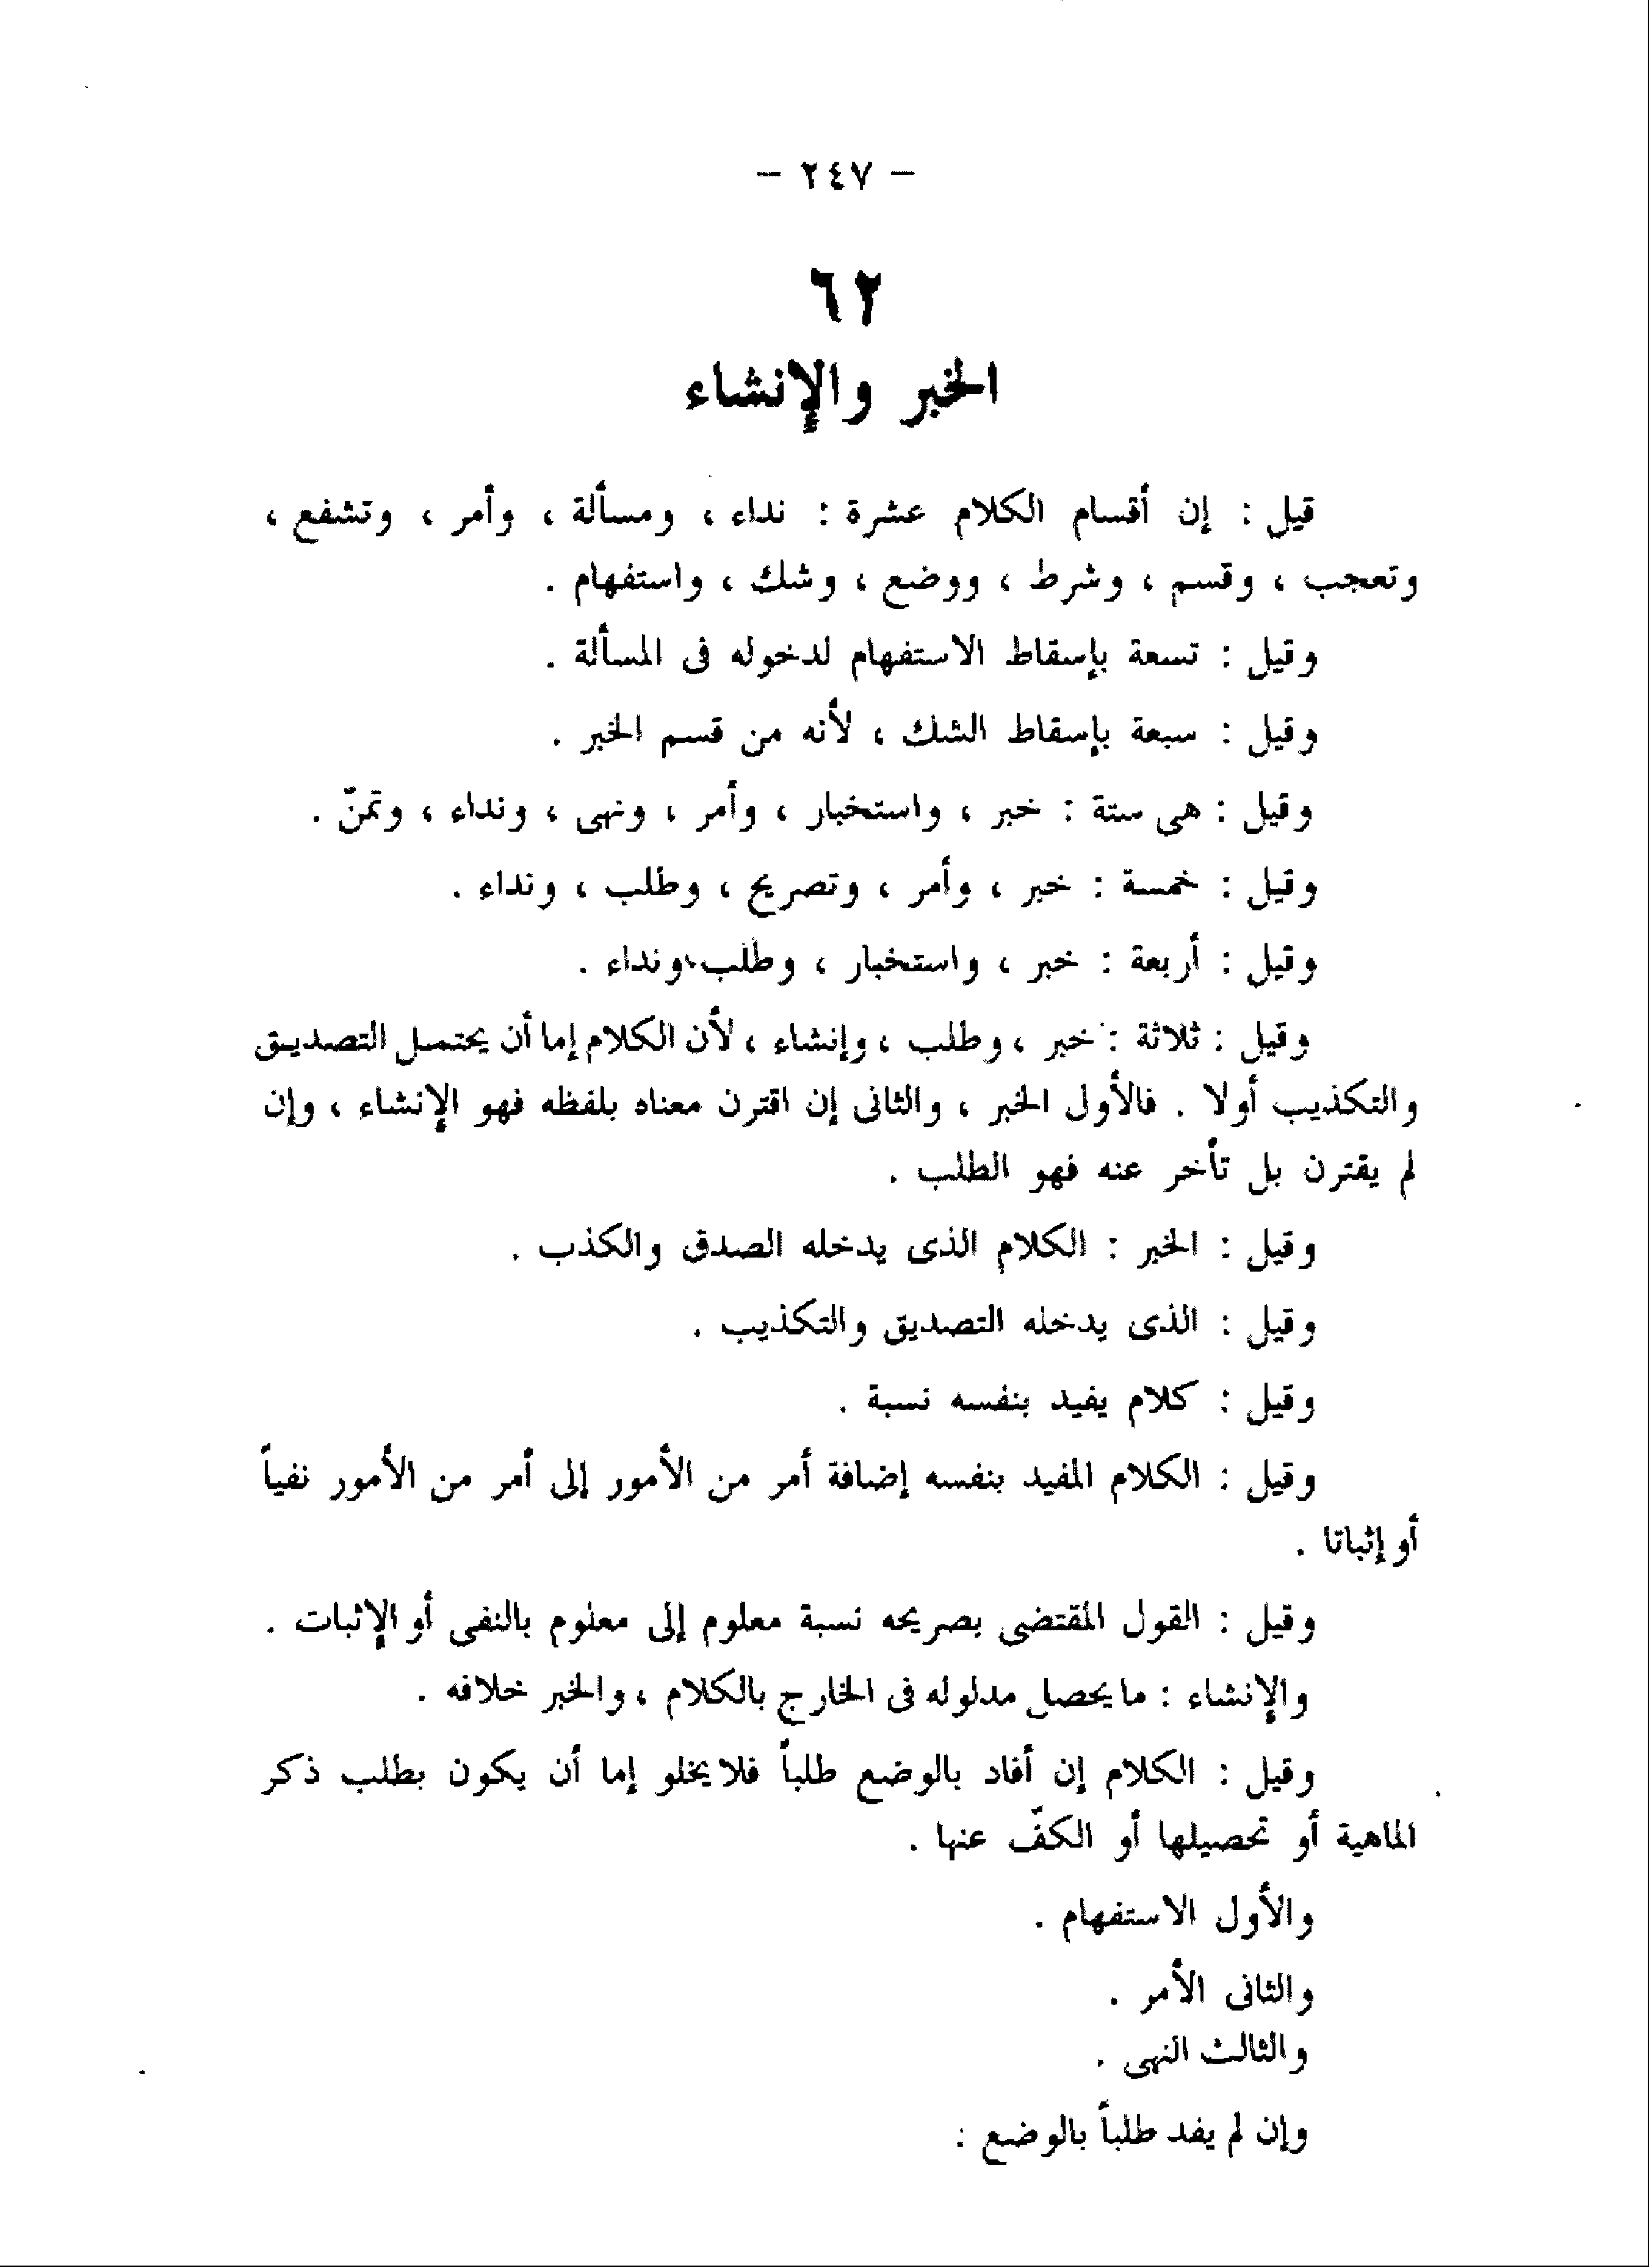 — ٢٤٧ —
٦٢
الخبر والإنشاء
قيل : إن أقسام الكلام عشرة : نداء ، ومسألة ، وأمر ، وتشفع ،
وتعجب ، وقسم ، وشرط ، ووضع ، وشك ، واستفهام .
وقيل : تسعة بإسقاط الاستفهام لدخوله فى المسألة .
وقيل : سبعة بإسقاط الشك ، لأنه من قسم الخبر .
وقيل : هى ستة : خبر ، واستخبار ، وأمر ، ونهى ، ونداء ، وتمنّ .
وقيل : خمسة : خبر ، وأمر ، وتصريح ، وطلب ، ونداء .
وقيل : أربعة : خبر ، واستخبار ، وطلب، ونداء .
وقيل : ثلاثة : خبر ، وطلب ، وإنشاء ، لأن الكلام إما أن يحتمل التصديق
والتكذيب أولا . فالأول الخبر ، والثانى إن اقترن معناه بلفظه فهو الإنشاء ، وإن
لم يقترن بل تأخر عنه فهو الطلب .
وقيل : الخبر : الكلام الذى يدخله الصدق والكذب .
وقيل : الذى يدخله التصديق والتكذيب .
وقيل : كلام يفيد بنفسه نسبة .
وقيل : الكلام المفيد بنفسه إضافة أمر من الأمور إلى أمر من الأمور نفياً
أو إثباتا .
وقيل : القول المقتضى بصريحه نسبة معلوم إلى معلوم بالنفى أو الإثبات .
والإنشاء : ما يحصل مدلوله فى الخارج بالكلام ، والخبر خلافه .
وقيل : الكلام إن أفاد بالوضع طلباً فلا يخلو إما أن يكون بطلب ذكر
الماهية أو تحصيلها أو الكفّ عنها .
والأول الاستفهام .
والثانى الأمر .
والثالث النهى .
وإن لم يفد طلباً بالوضع :